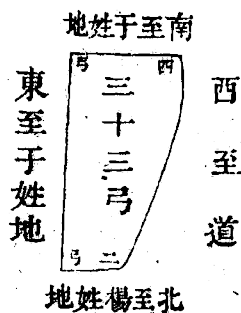 南至于姓地
西至道
西弓
三十三弓
二弓
東至于姓地
北至楊姓地